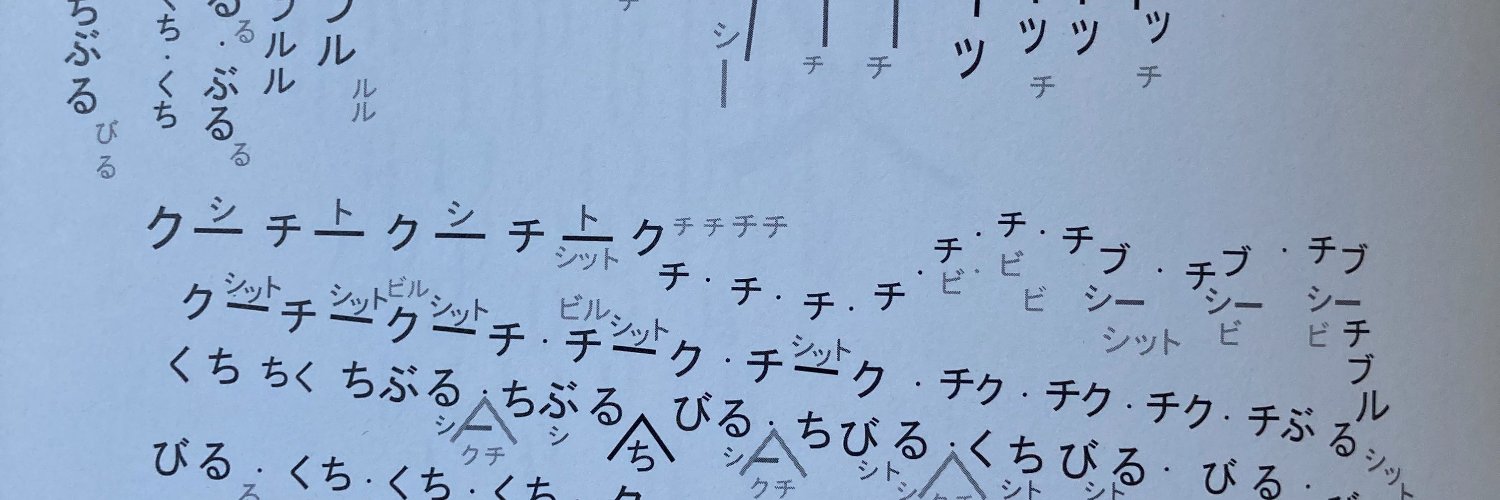 ちぶる
びる
ち・くち
る・ぶる
る
る
ブルル
ブル
ルル
シ|
チ
チ
ツ
ッ
チ
ッ
ッ
チ
ク シ チ ト ク シ チ ト ク チチチチ
シット
チ・チ・チ・チ・チ・チ・チブ・チブ・チブ
ビ・ビ ビ シー シー シー
シット ビ ビ
チブル
シット シット ビル シット ビル シット シット
ク ー チ ー ク ー チ・チ ー ク・チ ー ク・チク・チク・チク・チぶる
シット
くち ちく ちぶる・ちぶる びる・ちびる・くちびる・びる・
シー シ ち シー シト シ シト シト
クチ クチ クチ
びる・くち・くち・くち
る